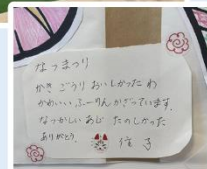 なつまつり
かき ごうり おいしかった わ
かわいい ふーりん かざっています。
なつかしい あじ たのしかった
ありがとう。
信子